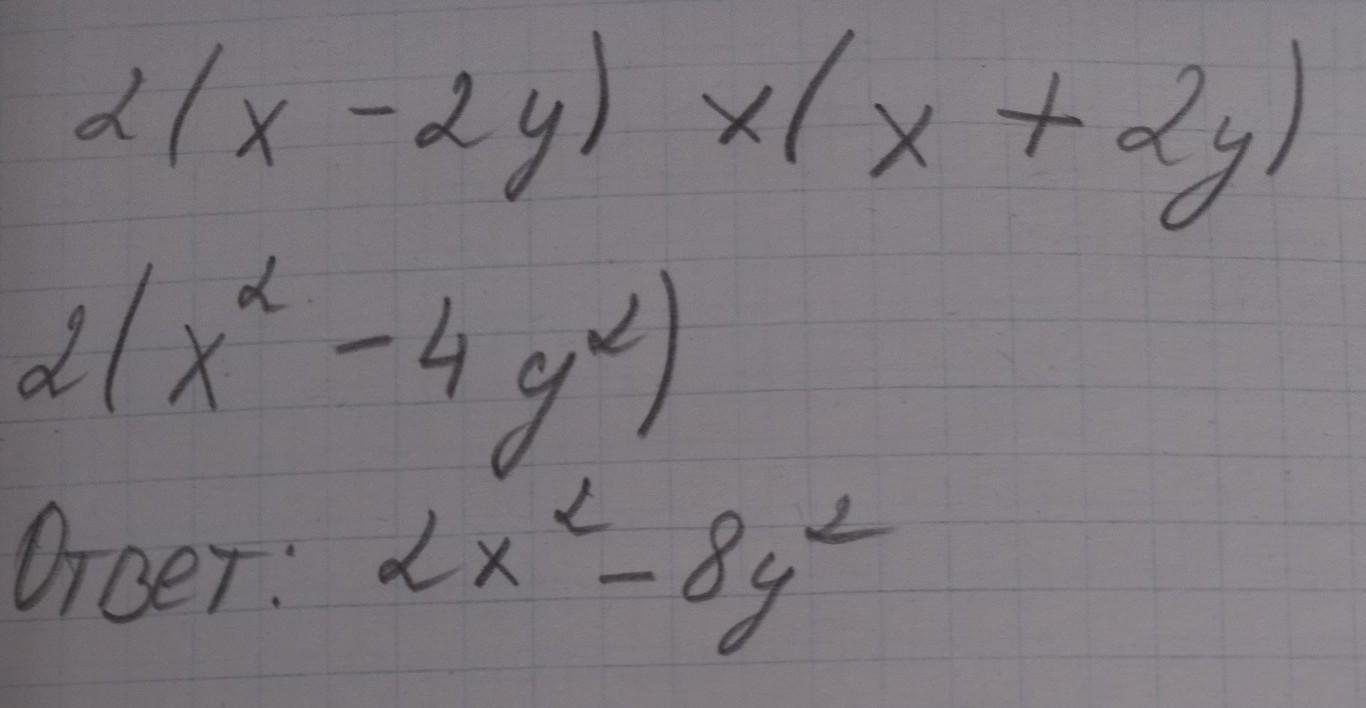 2(x - 2y) x(x + 2y)
2(x² - 4y²)
Ответ: 2x² - 8y²